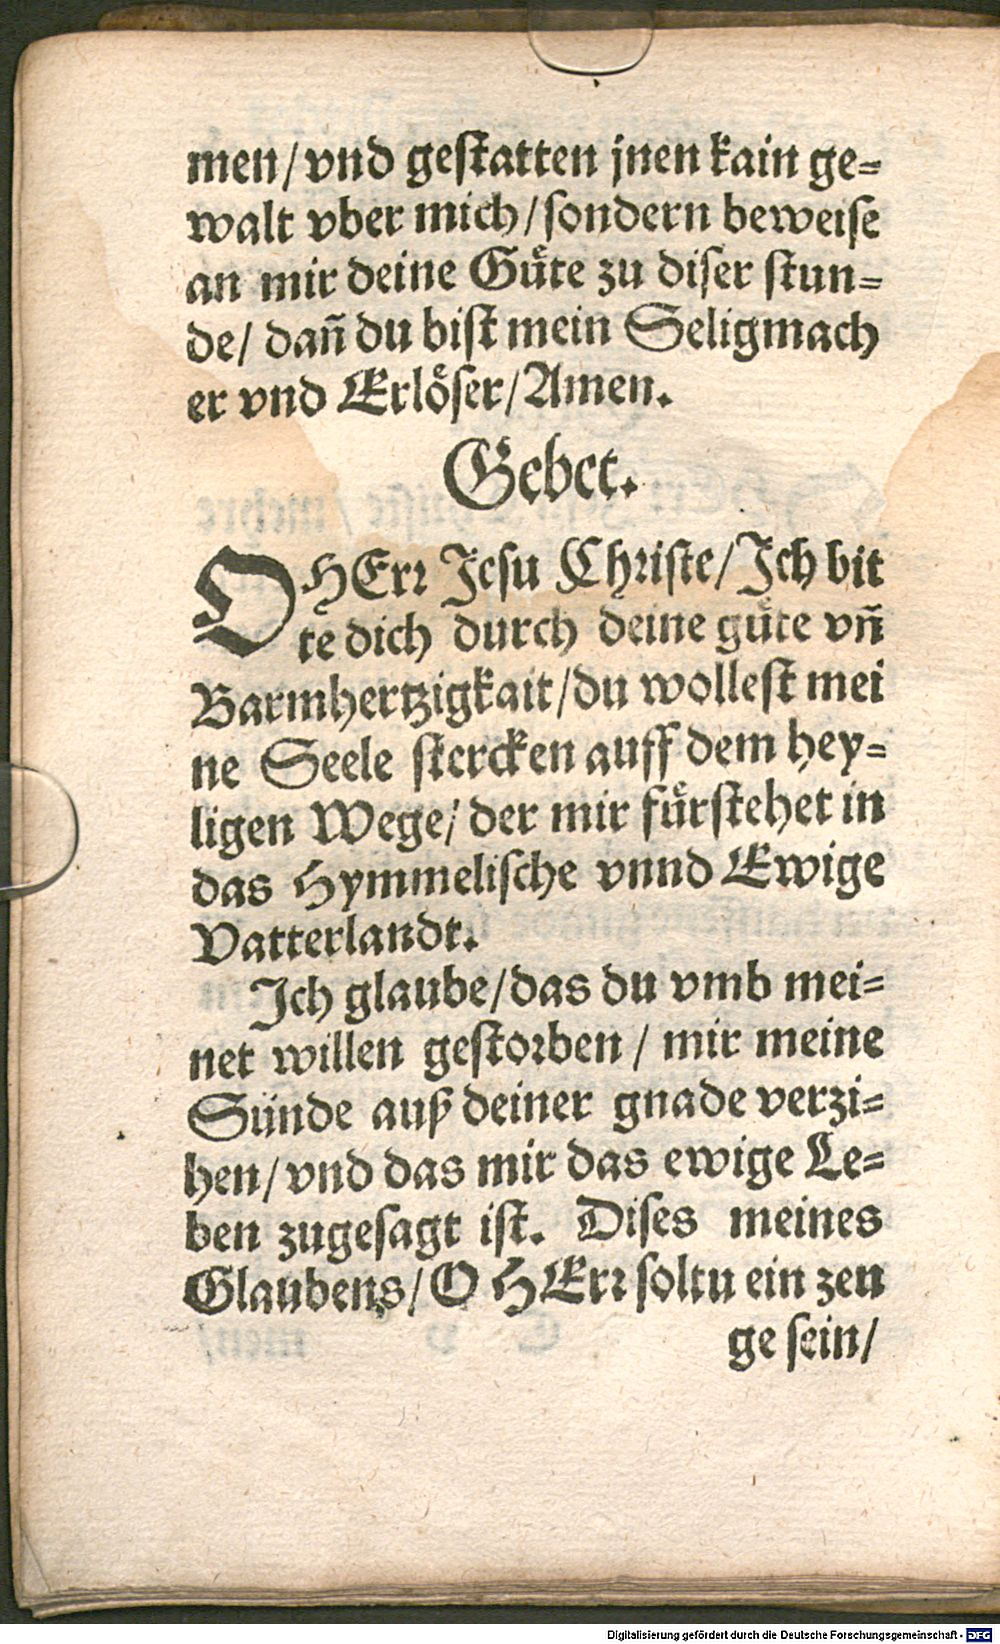 men/vnd gestatten jnen kain ge=
walt vber mich/sondern beweise
an mir deine Guͤte zu diser stun=
de/ dañ du bist mein Seligmach
er vnd Erloͤser/Amen.
Gebet.
O HErr Jesu Christe/Ich bit
te dich durch deine guͤte vñ
Barmhertzigkait/du wollest mei
ne Seele stercken auff dem hey=
ligen Wege/der mir fuͤrstehet in
das Hymmelische vnnd Ewige
Vatterlandt.
Ich glaube/das du vmb mei=
net willen gestorben / mir meine
Sünde auß deiner gnade verzi=
hen/vnd das mir das ewige Le=
ben zugesagt ist. Dises meines
Glaubens/O HErr soltu ein zeu
ge sein/
Digitalisierung gefördert durch die Deutsche Forschungsgemeinschaft - DFG